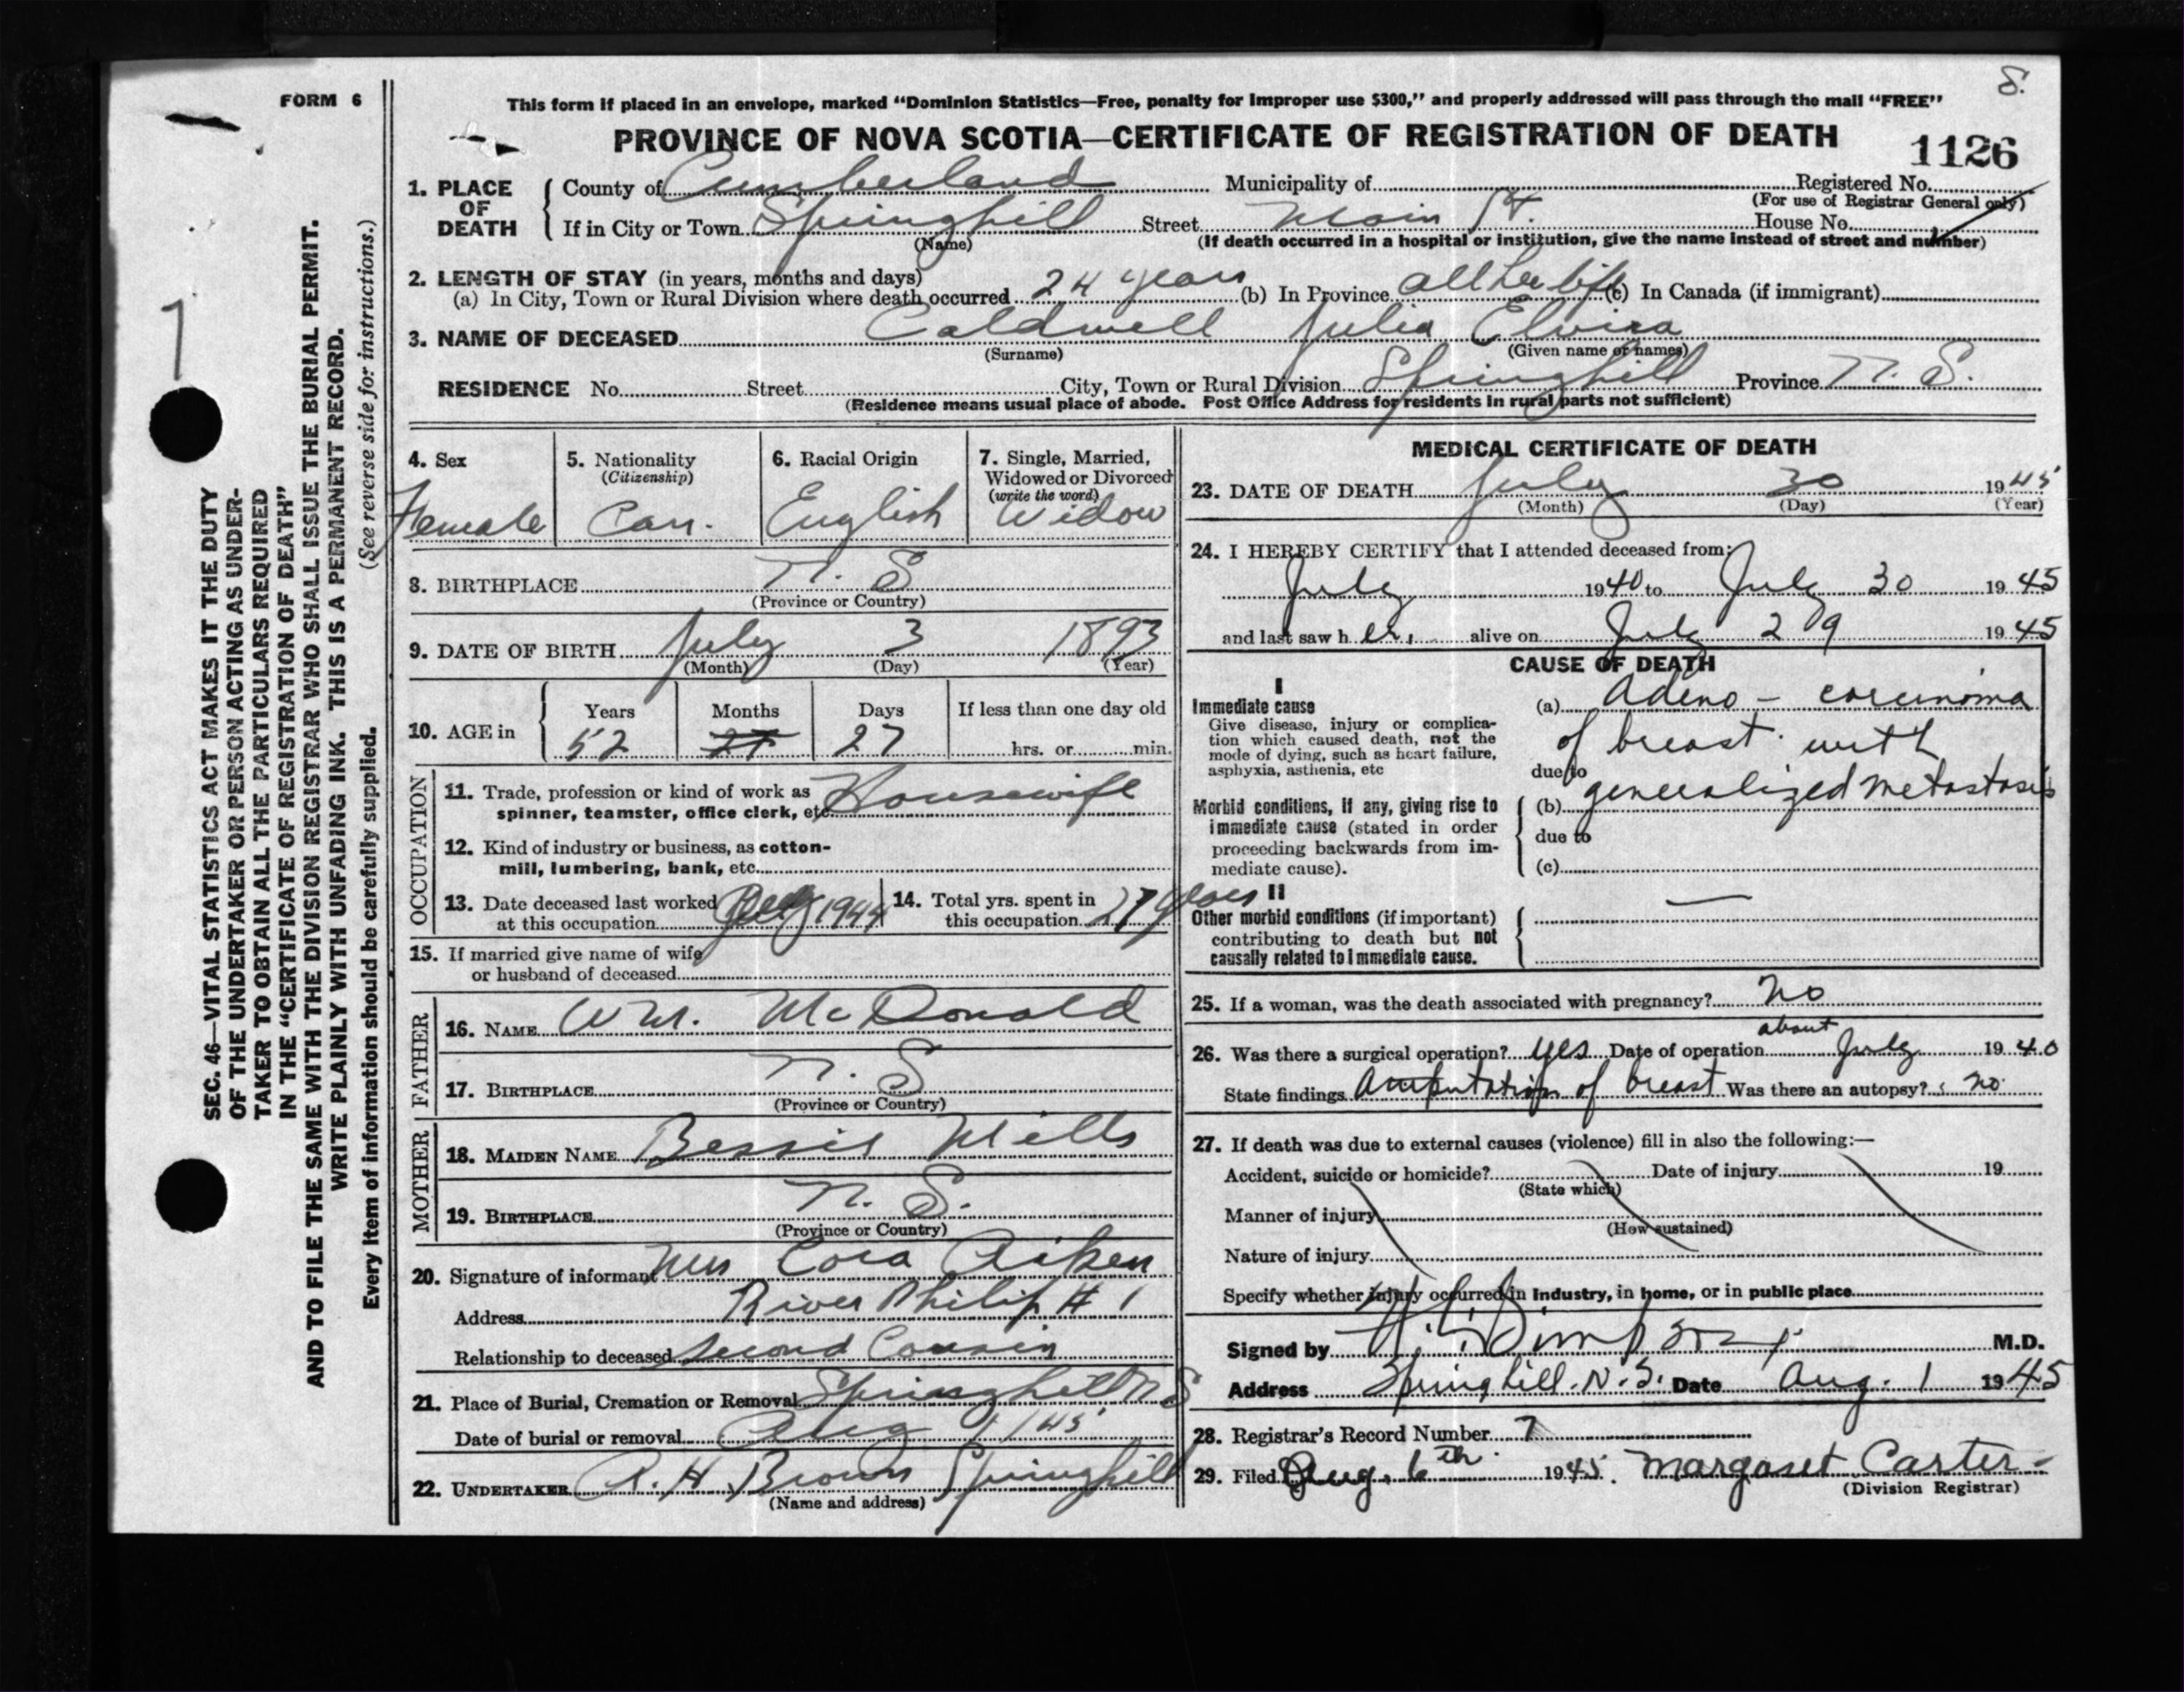 8.
FORM 6
This form if placed in an envelope, marked “Dominion Statistics—Free, penalty for improper use $300,” and properly addressed will pass through the mail “FREE”
PROVINCE OF NOVA SCOTIA—CERTIFICATE OF REGISTRATION OF DEATH
1126
1. PLACE OF DEATH County of Cumberland Municipality of Registered No.
(For use of Registrar General only)
If in City or Town Springhill Street Main St. House No.
(Name) (If death occurred in a hospital or institution, give the name instead of street and number)
2. LENGTH OF STAY (in years, months and days)
(a) In City, Town or Rural Division where death occurred 24 years (b) In Province all her life (c) In Canada (if immigrant)
3. NAME OF DECEASED Caldwell Julia Elvira
(Surname) (Given name or names)
RESIDENCE No. Street City, Town or Rural Division Springhill Province N. S.
(Residence means usual place of abode. Post Office Address for residents in rural parts not sufficient)
4. Sex 5. Nationality 6. Racial Origin 7. Single, Married,
(Citizenship) Widowed or Divorced
(write the word)
Female Can. English Widow
8. BIRTHPLACE N. S
(Province or Country)
9. DATE OF BIRTH July 3 1893
(Month) (Day) (Year)
10. AGE in Years Months Days If less than one day old
52 27 27 hrs. or min.
OCCUPATION
11. Trade, profession or kind of work as
spinner, teamster, office clerk, etc. Housewife
12. Kind of industry or business, as cotton-
mill, lumbering, bank, etc.
13. Date deceased last worked
at this occupation July 1944
14. Total yrs. spent in
this occupation 27 years
15. If married give name of wife
or husband of deceased
FATHER
16. NAME Wm. McDonald
17. BIRTHPLACE N. S
(Province or Country)
MOTHER
18. MAIDEN NAME Bessie Mills
19. BIRTHPLACE N. S.
(Province or Country)
20. Signature of informant Mrs Cora Aiken
Address River Philip # 1
Relationship to deceased Second Cousin
21. Place of Burial, Cremation or Removal Springhill N S
Date of burial or removal Aug 1/45
22. UNDERTAKER A. H Brown Springhill
(Name and address)
MEDICAL CERTIFICATE OF DEATH
23. DATE OF DEATH July 30 1945
(Month) (Day) (Year)
24. I HEREBY CERTIFY that I attended deceased from:
July 1940 to July 30 1945
and last saw her, alive on July 29 1945
CAUSE OF DEATH
I
Immediate cause
Give disease, injury or complica-
tion which caused death, not the
mode of dying, such as heart failure,
asphyxia, asthenia, etc
(a) Adeno - carcinoma
of breast with
due to
Morbid conditions, if any, giving rise to
immediate cause (stated in order
proceeding backwards from im-
mediate cause).
(b) generalized metastasis
due to
(c)
II
Other morbid conditions (if important)
contributing to death but not
causally related to immediate cause.
—
25. If a woman, was the death associated with pregnancy? no
26. Was there a surgical operation? yes Date of operation about July 1940
State findings Amputation of breast Was there an autopsy? no
27. If death was due to external causes (violence) fill in also the following:—
Accident, suicide or homicide? Date of injury 19
(State which)
Manner of injury
(How sustained)
Nature of injury
Specify whether injury occurred in industry, in home, or in public place
Signed by Simpson M.D.
Address Springhill. N. S. Date Aug. 1 1945
28. Registrar's Record Number 7
29. Filed Aug. 6th 1945. Margaret Carter -
(Division Registrar)
SEC. 46—VITAL STATISTICS ACT MAKES IT THE DUTY
OF THE UNDERTAKER OR PERSON ACTING AS UNDER-
TAKER TO OBTAIN ALL THE PARTICULARS REQUIRED
IN THE “CERTIFICATE OF REGISTRATION OF DEATH”
AND TO FILE THE SAME WITH THE DIVISION REGISTRAR WHO SHALL ISSUE THE BURIAL PERMIT.
WRITE PLAINLY WITH UNFADING INK. THIS IS A PERMANENT RECORD.
Every item of information should be carefully supplied. (See reverse side for instructions.)
1